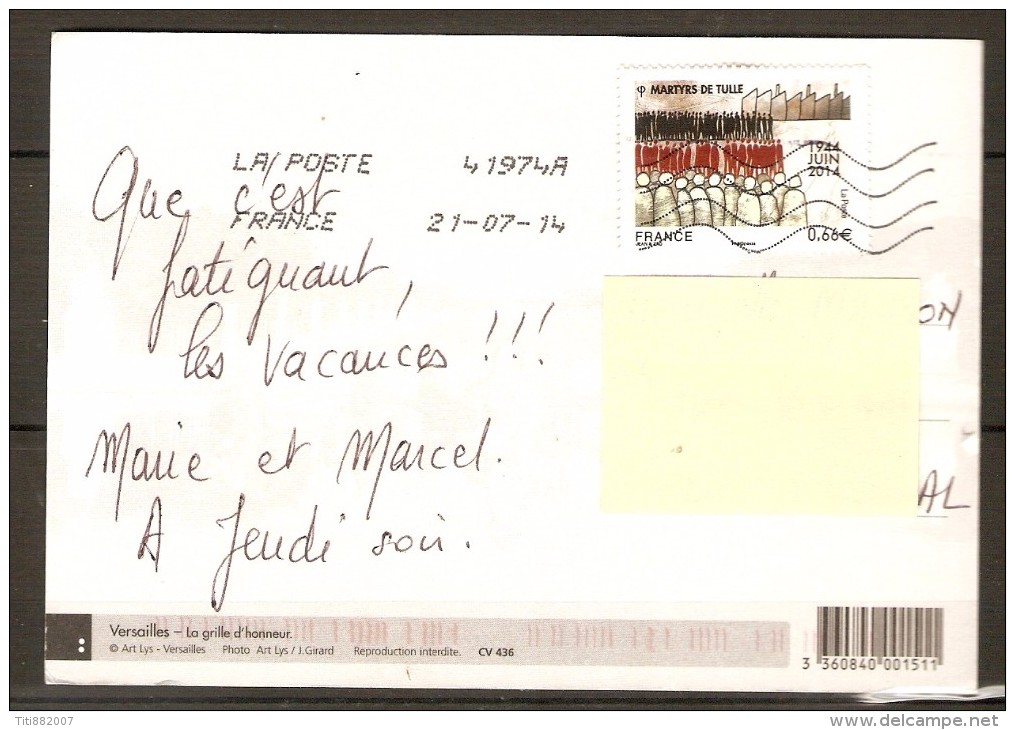 φ MARTYRS DE TULLE
1944
JUIN
2014
La Poste
FRANCE
0,66€
LA POSTE 41974A
FRANCE 21-07-14
Que c'est
fatiguant,
les vacances !!!
Marie et Marcel.
A Jeudi soir.
ON
AL
Versailles – La grille d'honneur.
© Art Lys - Versailles Photo Art Lys / J.Girard Reproduction interdite. CV 436
3 360840 001511
Titi882007
www.delcampe.net